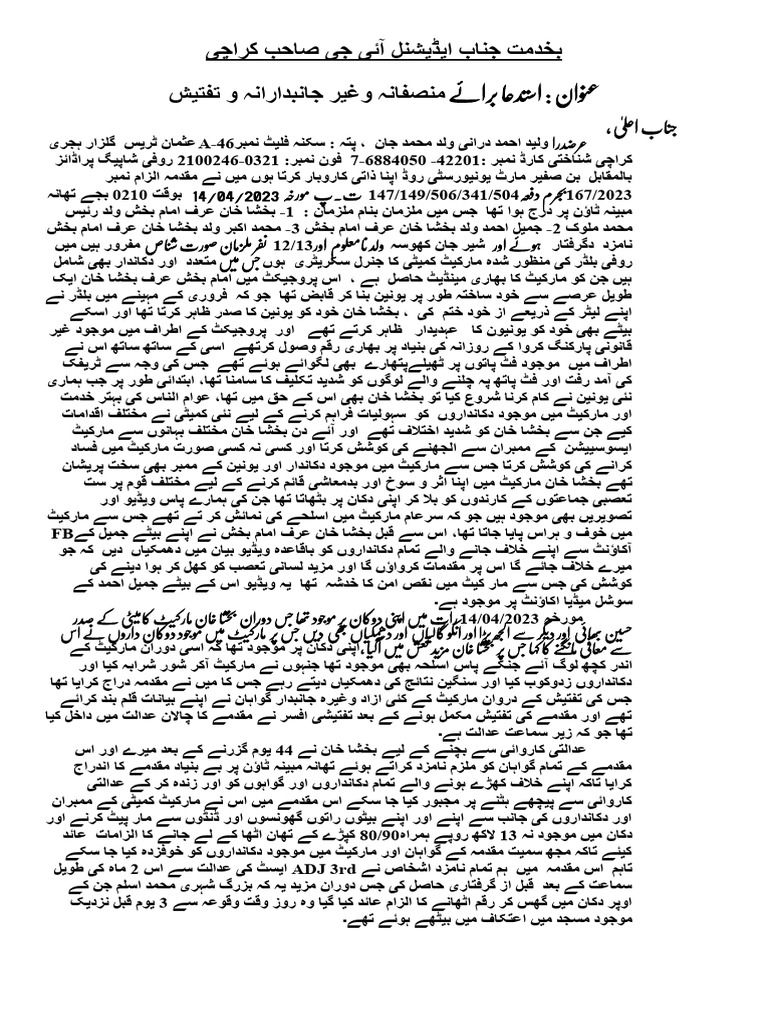 بخدمت جناب ایڈیشنل آئی جی صاحب کراچی
عنوان : استدعا برائے منصفانہ و غیر جانبدارانہ و تفتیش
جناب اعلیٰ ،
عرضدرا ولید احمد درانی ولد محمد جان ، پتہ : سکنہ فلیٹ نمبرA-46 عثمان ٹریس گلزار ہجری
کراچی شناختی کارڈ نمبر :42201- 6884050-7 فون نمبر: 0321-2100246 روفی شاپیگ پراڈائز
بالمقابل بن صغیر مارٹ یونیورسٹی روڈ اپنا ذاتی کاروبار کرتا ہوں میں نے مقدمہ الزام نمبر
167/2023بجرم دفعہ 147/149/506/341/504 ت۔پ مورخہ 14/04/2023 بوقت 0210 بجے تھانہ
مبینہ ٹاؤن پر درج ہوا تھا جس میں ملزمان بنام ملزمان : 1- بخشا خان عرف امام بخش ولد رئیس
محمد ملوک 2- جمیل احمد ولد بخشا خان عرف امام بخش 3- محمد اکبر ولد بخشا خان عرف امام بخش
نامزد دگرفتار ہوئے اور شیر جان کھوسہ ولد نامعلوم اور12/13 نفر ملزمان صورت شناص مفرور ہیں میں
روفی بلڈر کی منظور شدہ مارکیٹ کمیٹی کا جنرل سکریٹری ہوں جس میں متعدد اور دکاندار بھی شامل
ہیں جن کو مارکیٹ کا بھاری مینڈیٹ حاصل ہے ، اس پروجیکٹ میں امام بخش عرف بخشا خان ایک
طویل عرصے سے خود ساختہ طور پر یونین بنا کر قابض تھا جو کہ فروری کے مہینے میں بلڈر نے
اپنے لیٹر کے ذریعے از خود ختم کی ، بخشا خان خود کو یونین کا صدر ظاہر کرتا تھا اور اسکے
بیٹے بھی خود کو یونیون کا عہدیدار ظاہر کرتے تھے اور پروجیکٹ کے اطراف میں موجود غیر
قانونی پارکنگ کروا کے روزانہ کی بنیاد پر بھاری رقم وصول کرتھے اسی کے ساتھ ساتھ اس نے
اطراف میں موجود فٹ پاتوں پر ٹھیلےپتھارے بھی لگوائے ہوئے تھے جس کی وجہ سے ٹریفک
کی آمد رفت اور فٹ پاتھ پہ چلنے والے لوگوں کو شدید تکلیف کا سامنا تھا، ابتدائی طور پر جب ہماری
نئی یونین نے کام کرنا شروع کیا تو بخشا خان بھی اس کے حق میں تھا، عوام الناس کی بہتر خدمت
اور مارکیٹ میں موجود دکانداروں کو سہولیات فراہم کرنے کے لیے نئی کمیٹی نے مختلف اقدامات
کیے جن سے بخشا خان کو شدید اختلاف تھے اور آئے دن بخشا خان مختلف بہانوں سے مارکیٹ
ایسوسییشن کے ممبران سے الجھنے کی کوشش کرتا اور کسی نہ کسی صورت مارکیٹ میں فساد
کرانے کی کوشش کرتا جس سے مارکیٹ میں موجود دکاندار اور یونین کے ممبر بھی سخت پریشان
تھے بخشا خان مارکیٹ میں اپنا اثر و سوخ اور بدمعاشی قائم کرنے کے لیے مختلف قوم پر ست
تعصبی جماعتوں کے کارندوں کو بلا کر اپنی دکان پر بٹھاتا تھا جن کی ہمارے پاس ویڈیو اور
تصویریں بھی موجود ہیں جو کہ سرعام مارکیٹ میں اسلحے کی نمائش کر تے تھے جس سے مارکیٹ
میں خوف و ہراس پایا جاتا تھا، اس سے قبل بخشا خان عرف امام بخش نے اپنے بیٹے جمیل کےFB
آکاؤنٹ سے اپنے خلاف جانے والے تمام دکانداروں کو باقاعدہ ویڈیو بیان میں دھمکیاں دیں کہ جو
میرے خلاف جائے گا اس پر مقدمات کرواؤں گا اور مزید لسانی تعصب کو کھل کر ہوا دینے کی
کوشش کی جس سے مار کیٹ میں نقص امن کا خدشہ تھا یہ ویڈیو اس کے بیٹے جمیل احمد کے
سوشل میڈیا اکاؤنٹ پر موجود ہے۔
مورخم 14/04/2023رات میں اپنی دوکان پر موجود تھا جس دوران بخشا خان مارکیٹ کامیٹی کے صدر
حسین بھائی اور دیگر سے الجھ پڑا اور انکو گالیاں اور دھمکیاں بھی دیں جس پر مارکیٹ میں موجود دوکان داروں نے اس
سے معافی مانگنے کا کہا جس پر بخشا خان مزید طیش میں آگیا،اپنی دکان پر موجود تھا کہ اسی دوران مارکیٹ کے
اندر کچھ لوگ آئے جنکے پاس اسلحہ بھی موجود تھا جنہوں نے مارکیٹ آکر شور شرابہ کیا اور
دکانداروں زدوکوب کیا اور سنگین نتائج کی دھمکیاں دیتے رہے جس کا میں نے مقدمہ دراج کرایا تھا
جس کی تفتیش کے دروان مارکیٹ کے کئی ازاد وغیرہ جانبدار گواہان نے اپنے بیانات قلم بند کرائے
تھے اور مقدمے کی تفتیش مکمل ہونے کے بعد تفتیشی افسر نے مقدمے کا چالان عدالت میں داخل کیا
تھا جو کہ زیر سماعت عدالت ہے۔
عدالتی کاروائی سے بچنے کے لیے بخشا خان نے 44 یوم گزرنے کے بعد میرے اور اس
مقدمے کے تمام گواہان کو ملزم نامزد کراتے ہوئے تھانہ مبینہ ٹاؤن پر بے بنیاد مقدمے کا اندراج
کرایا تاکہ اپنے خلاف کھڑے ہونے والے تمام دکانداروں اور گواہوں کو اور زندہ کر کے عدالتی
کاروائی سے پیچھے ہٹنے پر مجبور کیا جا سکے اس مقدمے میں اس نے مارکیٹ کمیٹی کے ممبران
اور دکانداروں کی جانب سے اپنے اور اپنے بیٹوں راتوں گھونسوں اور ڈنڈوں سے مار پیٹ کرنے اور
دکان میں موجود نہ 13 لاکھ روپے ہمراہ80/90 کپڑے کے تھان اٹھا کے لے جانے کا الزامات عائد
کیئے تاکہ مجھ سمیت مقدمہ کے گواہان اور مارکیٹ میں موجود دکانداروں کو خوفزدہ کیا جا سکے
تاہم اس مقدمہ میں ہم تمام نامزد اشخاص نے ADJ 3rd ایسٹ کی عدالت سے اس 2 ماہ کی طویل
سماعت کے بعد قبل از گرفتاری حاصل کی جس دوران مزید یہ کہ بزرگ شہری محمد اسلم جن کے
اوپر دکان میں گھس کر رقم اٹھانے کا الزام عائد کیا گیا وہ روز وقت وقوعہ سے 3 یوم قبل نزدیک
موجود مسجد میں اعتکاف میں بیٹھے ہوئے تھے۔